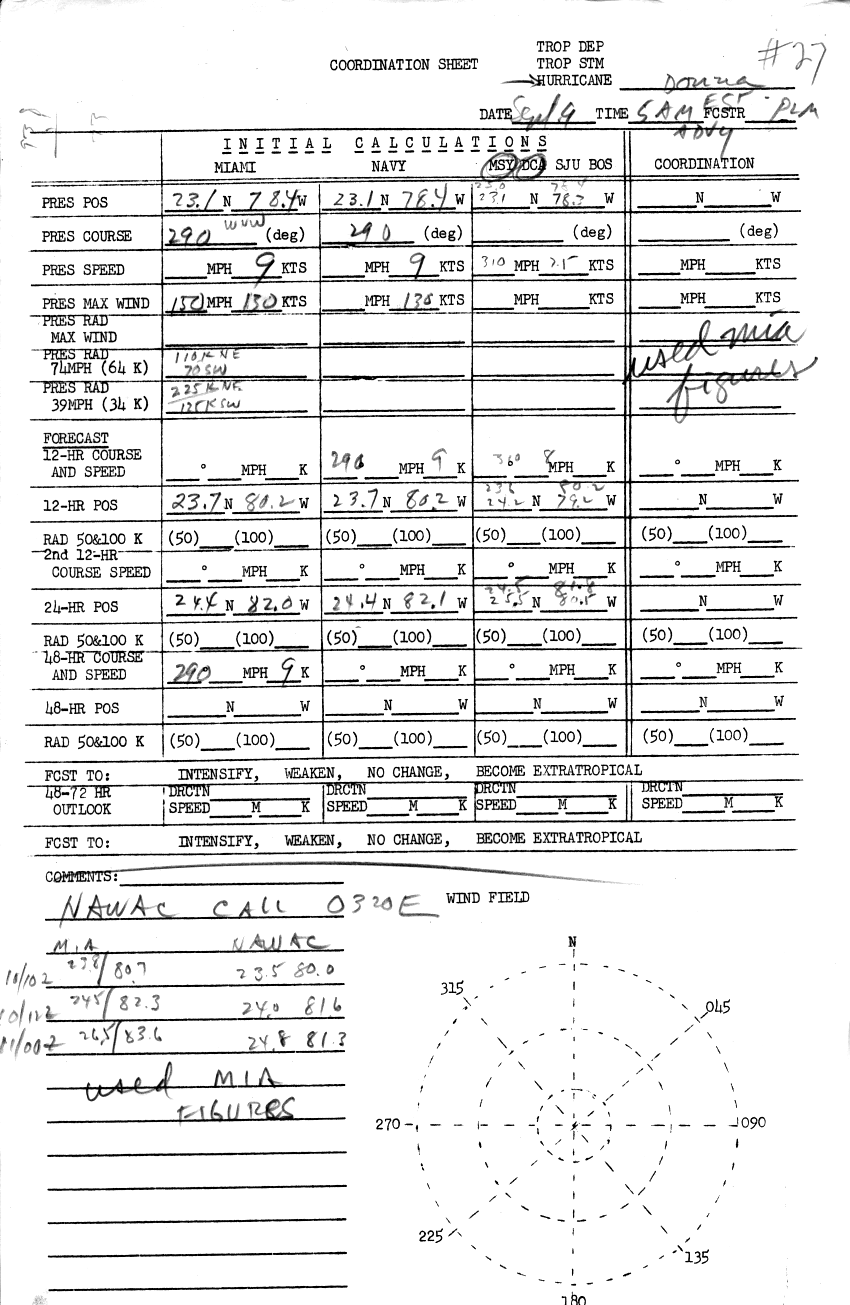 TROP DEP
#27
COORDINATION SHEET TROP STM
HURRICANE Donna
DATE Sept 9 TIME 5 AM EST FCSTR PLM
ADVY
INITIAL CALCULATIONS
MIAMI NAVY MSY DCA SJU BOS COORDINATION
PRES POS 23.1 N 78.4 W 23.1 N 78.4 W 23.1 N 78.3 W N W
PRES COURSE 290 WNW (deg) 290 (deg) (deg) (deg)
PRES SPEED MPH 9 KTS MPH 9 KTS 310 MPH KTS MPH KTS
PRES MAX WIND 150 MPH 130 KTS MPH 130 KTS MPH KTS MPH KTS
PRES RAD
MAX WIND
PRES RAD 110K NE
74MPH (64 K) 70 SW
used mia
PRES RAD 225K NE
figures
39MPH (34 K) 125K SW
FORECAST
12-HR COURSE 290 9 360 8
AND SPEED ° MPH K MPH K MPH K ° MPH K
23.6 80.2
12-HR POS 23.7 N 80.2 W 23.7 N 80.2 W 24.2 N 79.2 W N W
RAD 50&100 K (50) (100) (50) (100) (50) (100) (50) (100)
2nd 12-HR
COURSE SPEED ° MPH K ° MPH K ° MPH K ° MPH K
24.5 81.8
24-HR POS 24.4 N 82.0 W 24.4 N 82.1 W 25.5 N 80.5 W N W
RAD 50&100 K (50) (100) (50) (100) (50) (100) (50) (100)
48-HR COURSE
AND SPEED 290 MPH 9 K ° MPH K ° MPH K ° MPH K
48-HR POS N W N W N W N W
RAD 50&100 K (50) (100) (50) (100) (50) (100) (50) (100)
FCST TO: INTENSIFY, WEAKEN, NO CHANGE, BECOME EXTRATROPICAL
48-72 HR DRCTN DRCTN DRCTN DRCTN
OUTLOOK SPEED M K SPEED M K SPEED M K SPEED M K
FCST TO: INTENSIFY, WEAKEN, NO CHANGE, BECOME EXTRATROPICAL
COMMENTS:
NAWAC CALL 0320E WIND FIELD
MIA NAWAC
10/10Z 23.8/80.7 23.5 80.0
10/12Z 245/82.3 24.0 816
11/00Z 26.5/83.6 24.8 81.3
used MIA
FIGURES
N
315
045
270
090
225
135
180